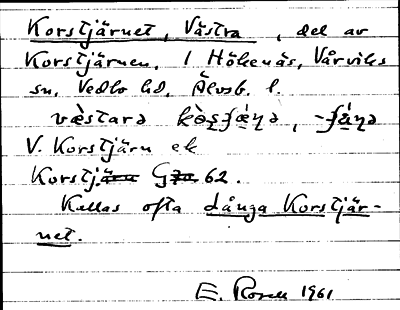 Korstjärnet, Västra, del av
Korstjärnen. I Hökenäs, Vårviks
sn, Vedbo hd, Älvsb. l.
væ̀stara
V. Korstjärn ek
Korstjärn Gza 62.
Kallas ofta långa Korstjär-
net.
E. Rosell 1961